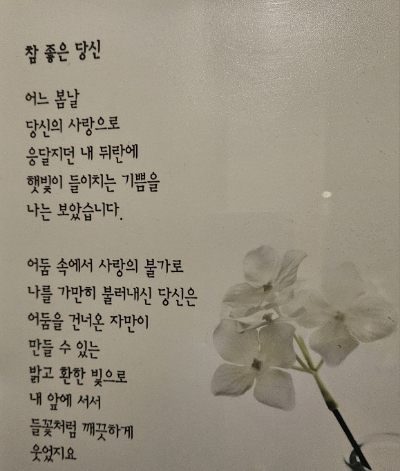 참 좋은 당신
어느 봄날
당신의 사랑으로
응달지던 내 뒤란에
햇빛이 들이치는 기쁨을
나는 보았습니다.
어둠 속에서 사랑의 불가로
나를 가만히 불러내신 당신은
어둠을 건너온 자만이
만들 수 있는
밝고 환한 빛으로
내 앞에 서서
들꽃처럼 깨끗하게
웃었지요